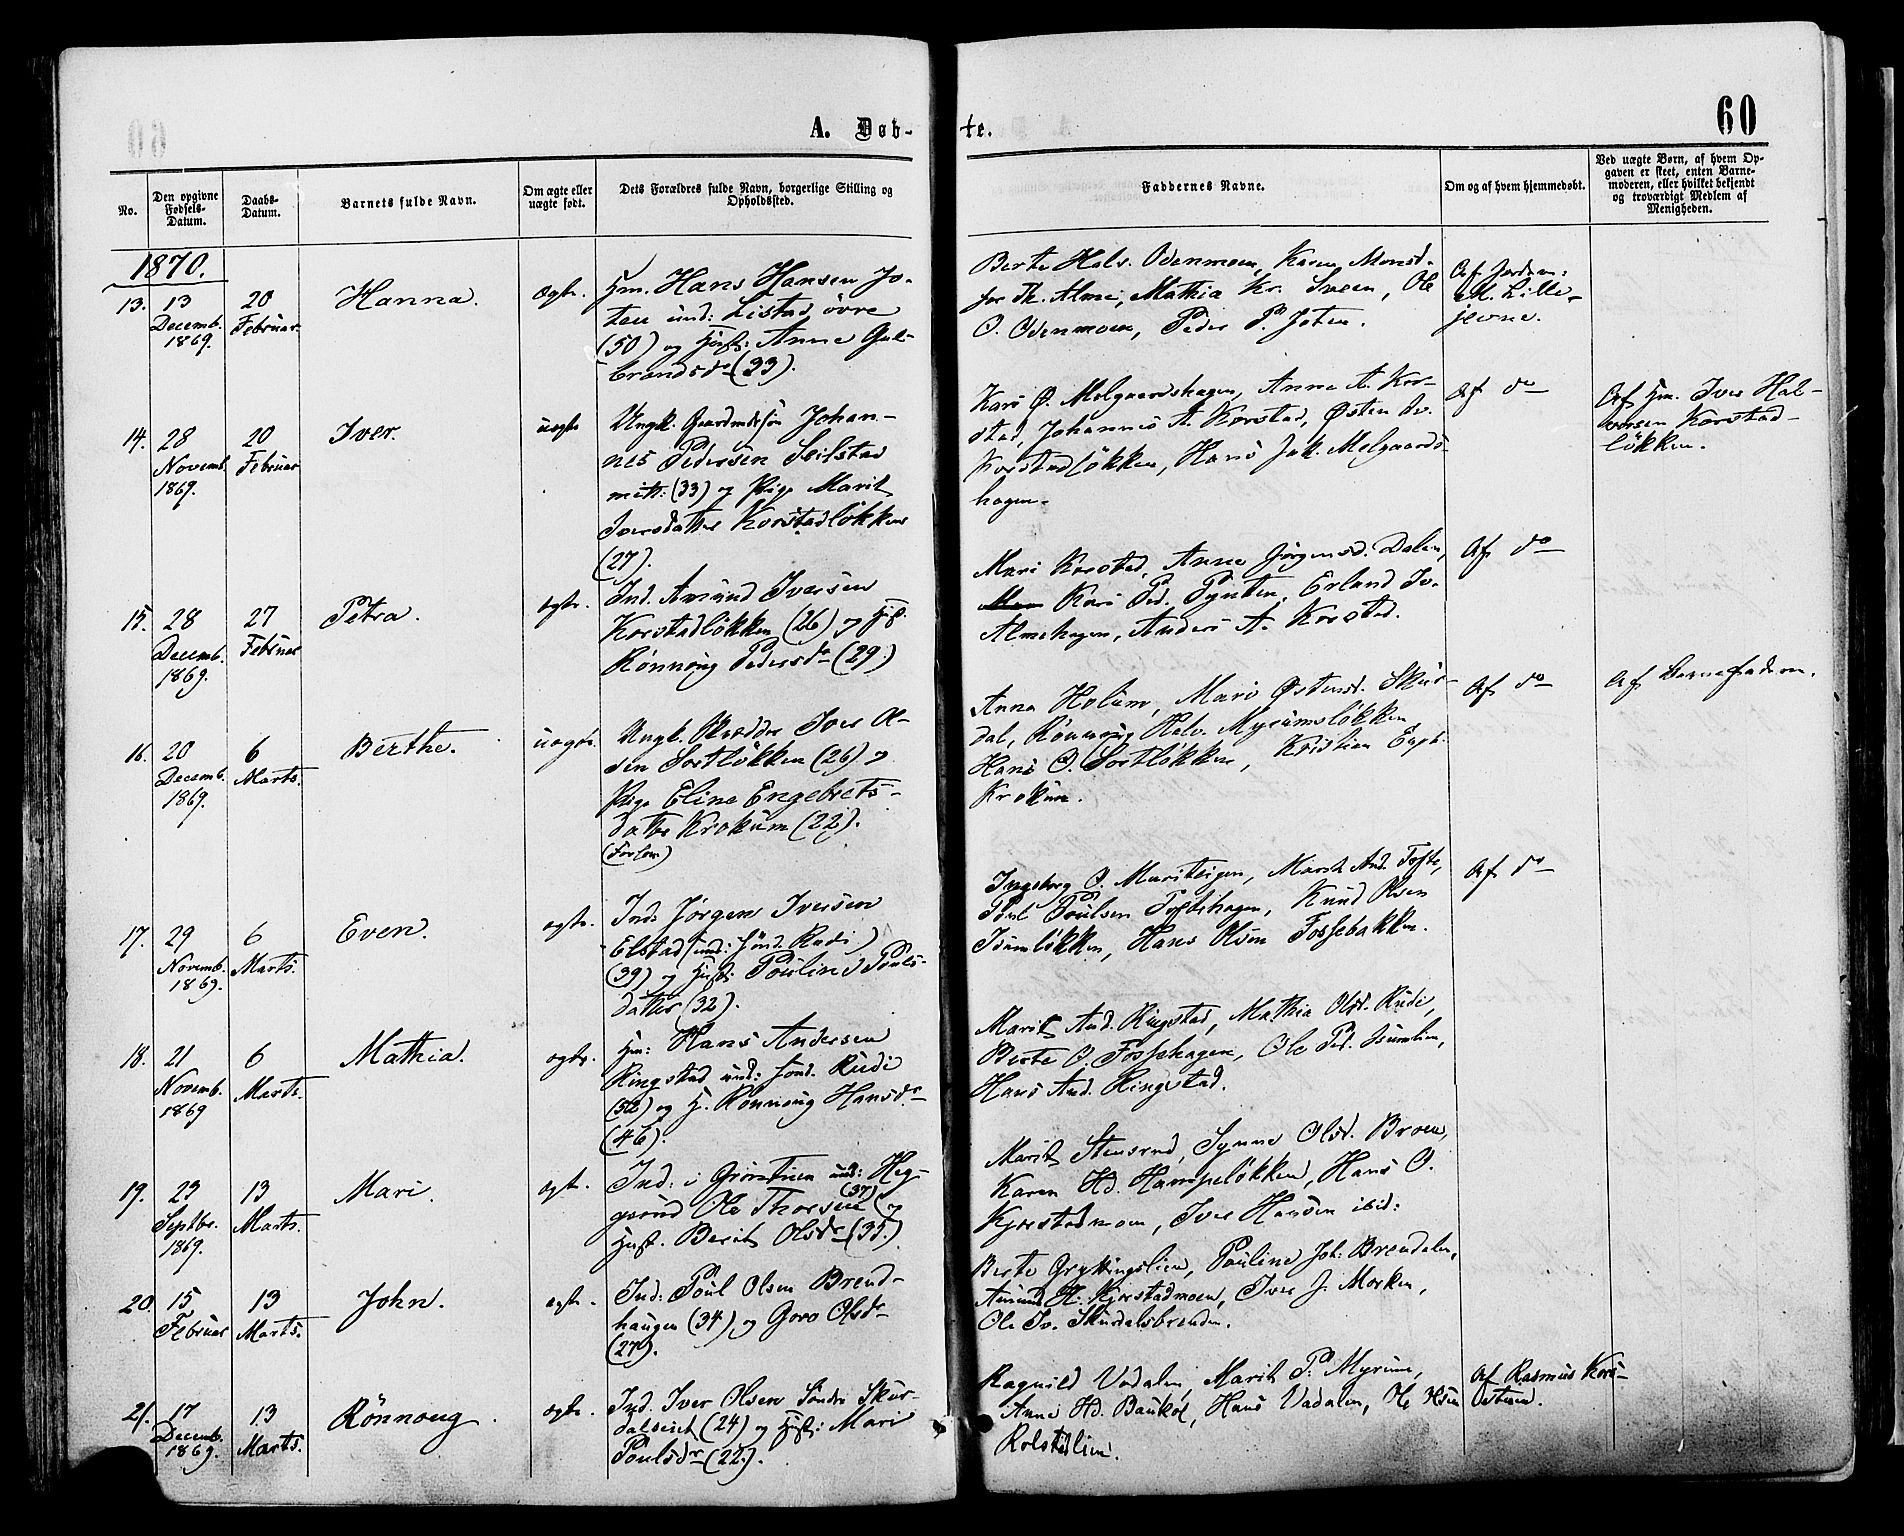 60
A. Døb-
te.
No.
Den opgivne Fødsels-Datum.
Daabs-Datum.
Barnets fulde Navn.
Om ægte eller uægte født.
Dets Forældres fulde Navn, borgerlige Stilling og Opholdssted.
Faddernes Navne.
Om og af hvem hjemmedøbt.
Ved uægte Børn, af hvem Op-
gaven er skeet, enten Barne-
moderen, eller hvilket bekjendt
og troværdigt Medlem af
Menigheden.
1870.
13.
13
Decemb.
1869.
20
Februar.
Hanna.
ægte.
Hm. Hans Hansen Jo-
ten und: Listad øvre
(50) og Hust: Anne Gul-
brandsdr (33).
Berte Halv. Odenmoen, Karen Monsd.
Th. Alme, Mathia Kr. Sveen, Ole
O. Odenmoen, Peder P. Joten.
Af Jordm:
M. Lille-
jevne.
14.
28
Novemb.
1869.
20
Februar
Iver.
uægte
Ungk. Johan-
nes Pedersen Seilstad
(33) og Pige Marit
Iversdatter Korstadløkken
(27).
Kari O. Melgaardshagen, Anne A. Kor-
stad, Johannes A. Korstad, Østen Iv.
Korstadløkken, Hans Jak. Melgaards-
hagen.
Af do
Af Hm. Iver Hal-
vorsen Korstad-
løkken.
15.
28
Decemb.
1869.
27
Februar
Petra.
ægte.
Ind. Amund Iversen
Korstadløkken (26) og H.
Rønnoug Pedersdr (29)
Mari Korstad, Anne Jørgensd. Dalen,
Kari Ped. Pynten, Erland Iv.
Almehagen, Anders A. Korstad.
Af do
16.
20
Decemb.
1869.
6
Marts.
Berthe.
uægte.
Ungk. Skrædder Iver O-
den Sortløkken (26) og
Pige Eline Engebrets-
datter Krokum (22).
(Forlov)
Anna Holum, Mari Østensd. Skur-
dal, Rønnoug Halv. Myrumsløkken,
Hans O. Sortløkken, Kristian Engb.
Krokum.
Af do
Af Barnefaderen.
17.
29
Novemb.
1869.
6
Marts.
Even.
ægte.
Ind: Jørgen Iversen
Elstad (und: Sønd. Rudi)
(39) og Hust: Pouline Pouls-
datter (32).
Ingeborg O. Muriteigen, Marit And. Tofte,
Poul Poulsen Toftehagen, Knud Olsen
Isumløkken, Hans Olsen Fossebakken.
Af do
18.
21
Novemb.
1869
6
Marts.
Mathia.
ægte.
Hm: Hans Andersen
Ringstad und: Sønd. Rudi
(52) og H. Rønnoug Hansdr
(46).
Marit And. Ringstad, Mathia Olsd. Rudi,
Berte O. Fossehagen, Ole Ped. Isumlien,
Hans And. Ringstad.
19.
23
Septbr.
1869.
13
Marts.
Mari.
ægte.
Ind: i Grøntuen und: Heg-
gerud Ole Thorsen (37) og
Hust. Berit Olsdr (35.)
Marit Stensrud, Synne Olsd. Broen,
Karen Hd. Hampeløkken, Hans O.
Kjorstadmoen, Iver Hansen ibid:
20.
15
Februar
13
Marts.
John.
ægte.
Ind: Poul Olsen Brend-
haugen (34) og Goro Olsdr
(27).
Berte Gryttingslien, Pouline Joh: Brendalen,
Amund H. Kjorstadmoen, Iver J. Morken,
Ole Iv. Skurdalsbrenden.
21.
17
Decemb.
1869.
13
Marts.
Rönnoug
ægte.
Ind. Iver Olsen Søndre Skur-
dalseit (24) og Hust: Mari
Poulsdr (22.)
Ragnild Vadalen, Marit P. Myrum,
Anne Hd. Baukol, Hans Vadalen, Ole Olsen
Rolstadlien.
Af Rasmus Kors-